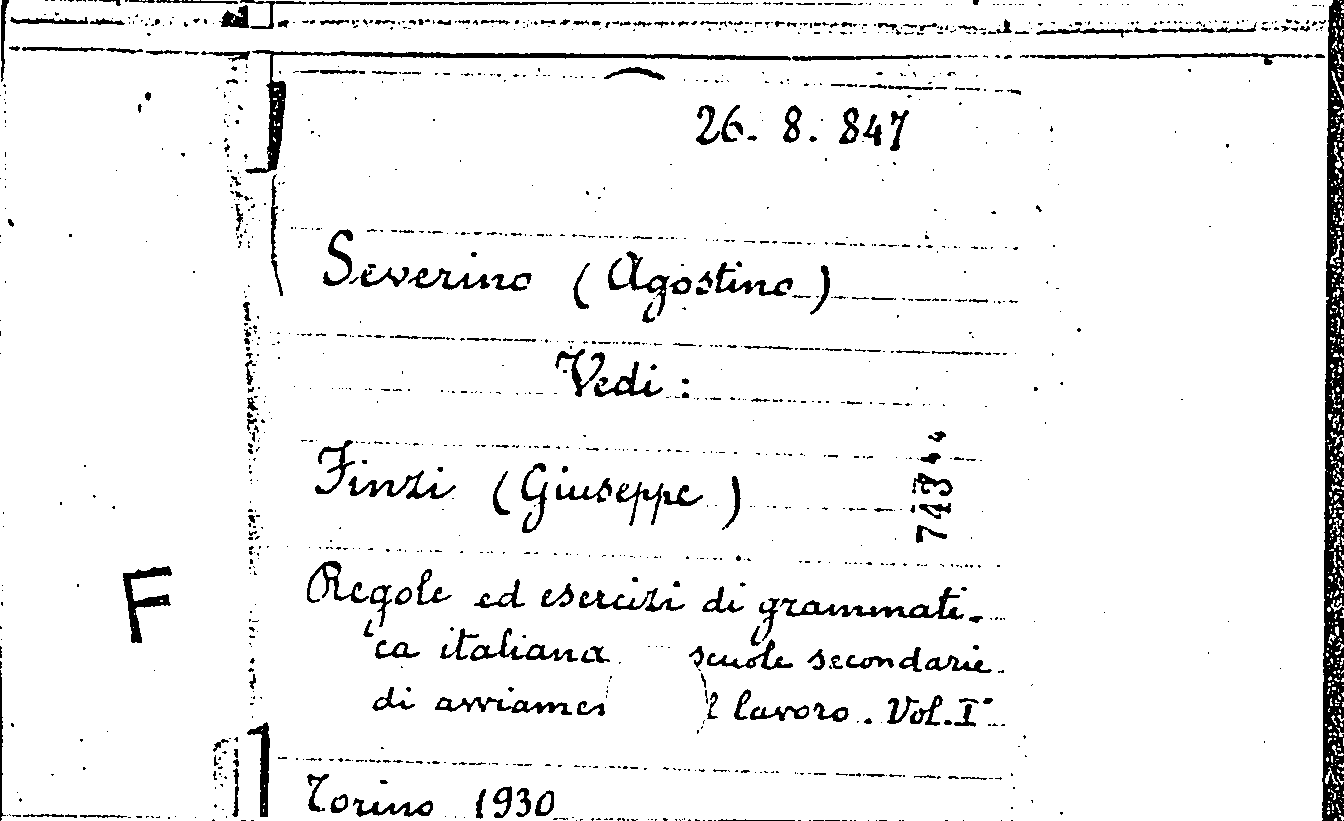 26. 8. 847
Severino (Agostino)
Vedi:
Finzi (Giuseppe)
F
Regole ed esercizi di grammati-
ca italiana scuole secondarie
di avviamen l lavoro. Vol. I°
Torino 1930